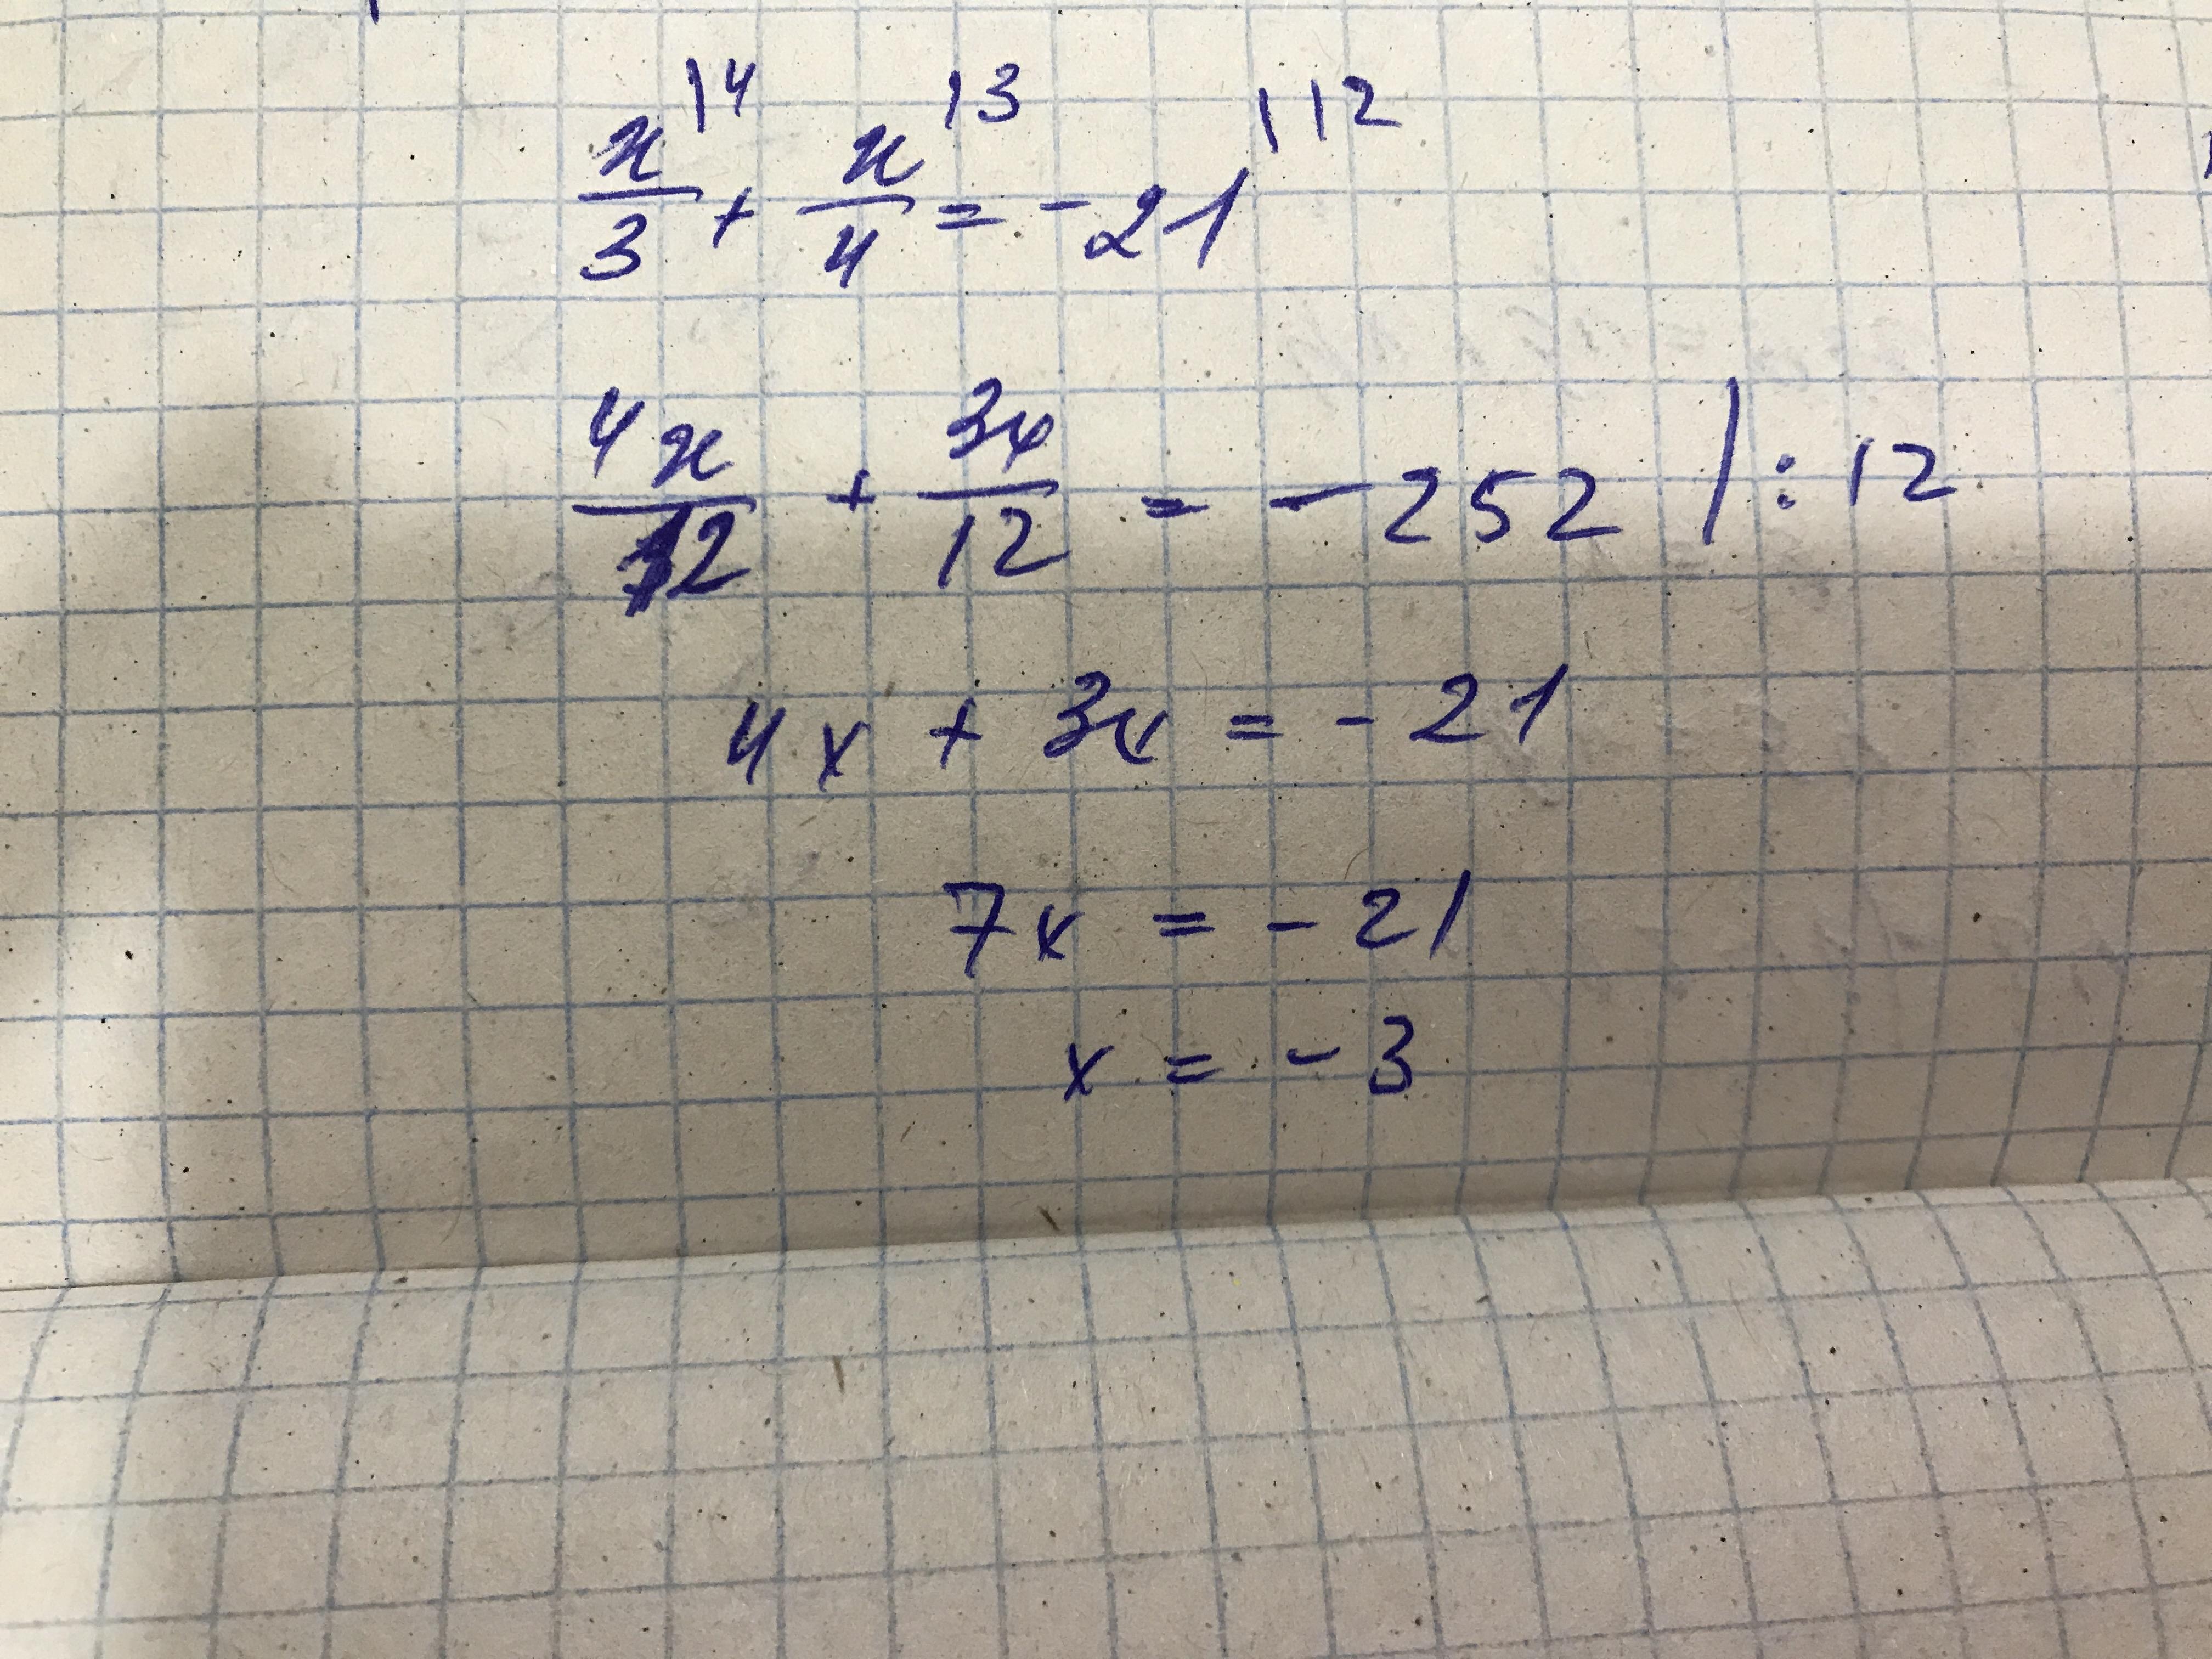 x/3 |4 + x/4 |3 = -21 |12
4x/12 + 3x/12 = -252 | : 12
4x + 3x = -21
7x = -21
x = -3